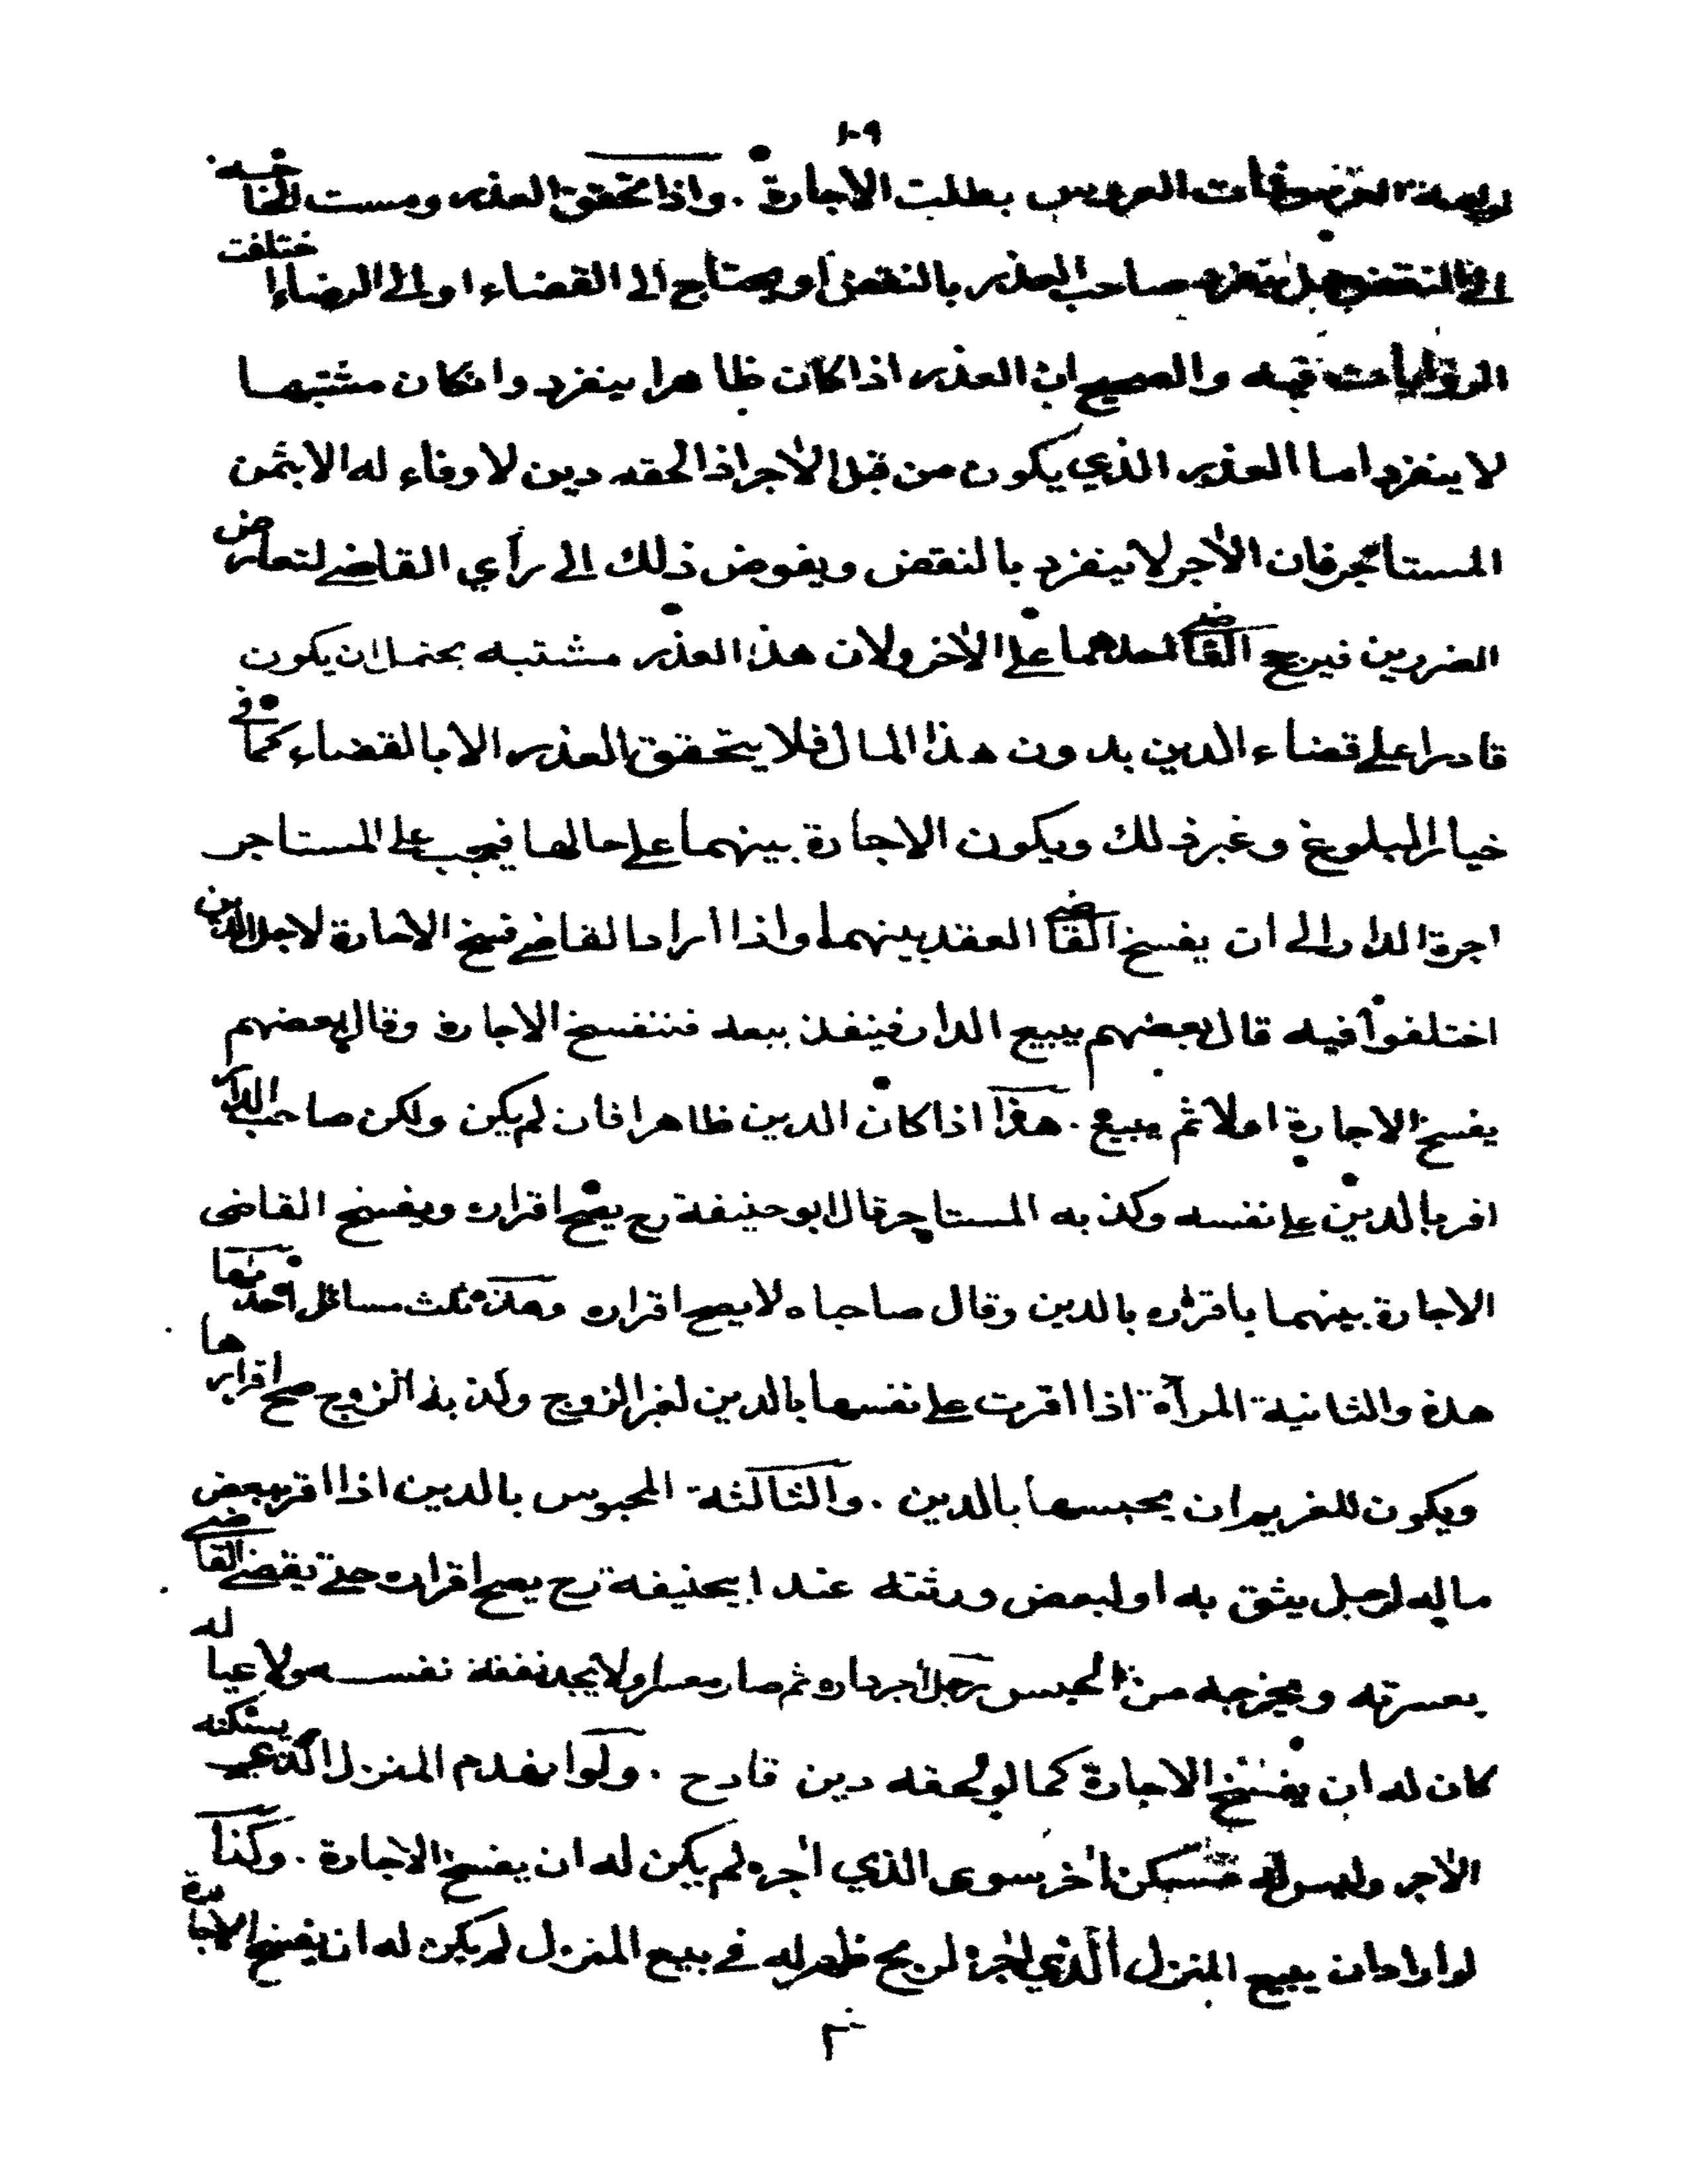 ١٠٩
لوليمة العرس فماتت العروس بطلت الاجارة . واذا تحقق العذر ومست الحاجة
الى النقض هل ينفرد صاحب العذر بالنقض او يحتاج الى القضاء او الى الرضاء اختلفت
الروايات فيه والصحيح ان العذر اذا كان ظاهرا ينفرد وان كان مشتبها
لا ينفرد اما العذر الذي يكون من قبل الآجر اذا لحقه دين لا وفاء له الا بثمن
المستأجر فان الآجر لا ينفرد بالنقض ويفوض ذلك الى رأي القاضي لتعارض
الضررين فيرجح القاضي احدهما على الآخر ولان هذا العذر مشتبه يحتمل ان يكون
قادرا على قضاء الدين بدون هذا المال فلا يتحقق العذر الا بالقضاء كما في
خيار البلوغ وغير ذلك ويكون الاجارة بينهما على حالها فيجب على المستاجر
اجرة الدار الى ان يفسخ القاضي العقد بينهما واذا اراد القاضي فسخ الاجارة لاجل الدين
اختلفوا فيه قال بعضهم يبيع الدار فينفذ بيعه فتنفسخ الاجارة وقال بعضهم
يفسخ الاجارة اولا ثم يبيع . هذا اذا كان الدين ظاهرا فان لم يكن ولكن صاحب الدار
اقر بالدين على نفسه وكذبه المستاجر قال ابو حنيفة رح يصح اقراره ويفسخ القاضي
الاجارة بينهما باقراره بالدين وقال صاحباه لا يصح اقراره وهذه ثلث مسائل احدها
هذه والثانية المرأة اذا اقرت على نفسها بالدين لغير الزوج وكذبه الزوج صح اقرارها
ويكون للغريم ان يحبسها بالدين . والثالثة المحبوس بالدين اذا اقر ببعض
ماله لرجل يثق به او لبعض ورثته عند ابيحنيفة رح يصح اقراره حتى يقضي القاضي
بعسرته ويخرجه من الحبس رجل آجر داره ثم صار معسرا ولا يجد نفقة نفسه ولا عياله
كان له ان يفسخ الاجارة كما لو لحقه دين قادح . ولو انهدم المنزل الذي يسكنه
الآجر وليس له مسكن آخر سوى الذي آجره لم يكن له ان يفسخ الاجارة . وكذا
لو اراد ان يبيع المنزل الذي آجره لربح ظهر له في بيع المنزل لم يكن له ان يفسخ الاجارة